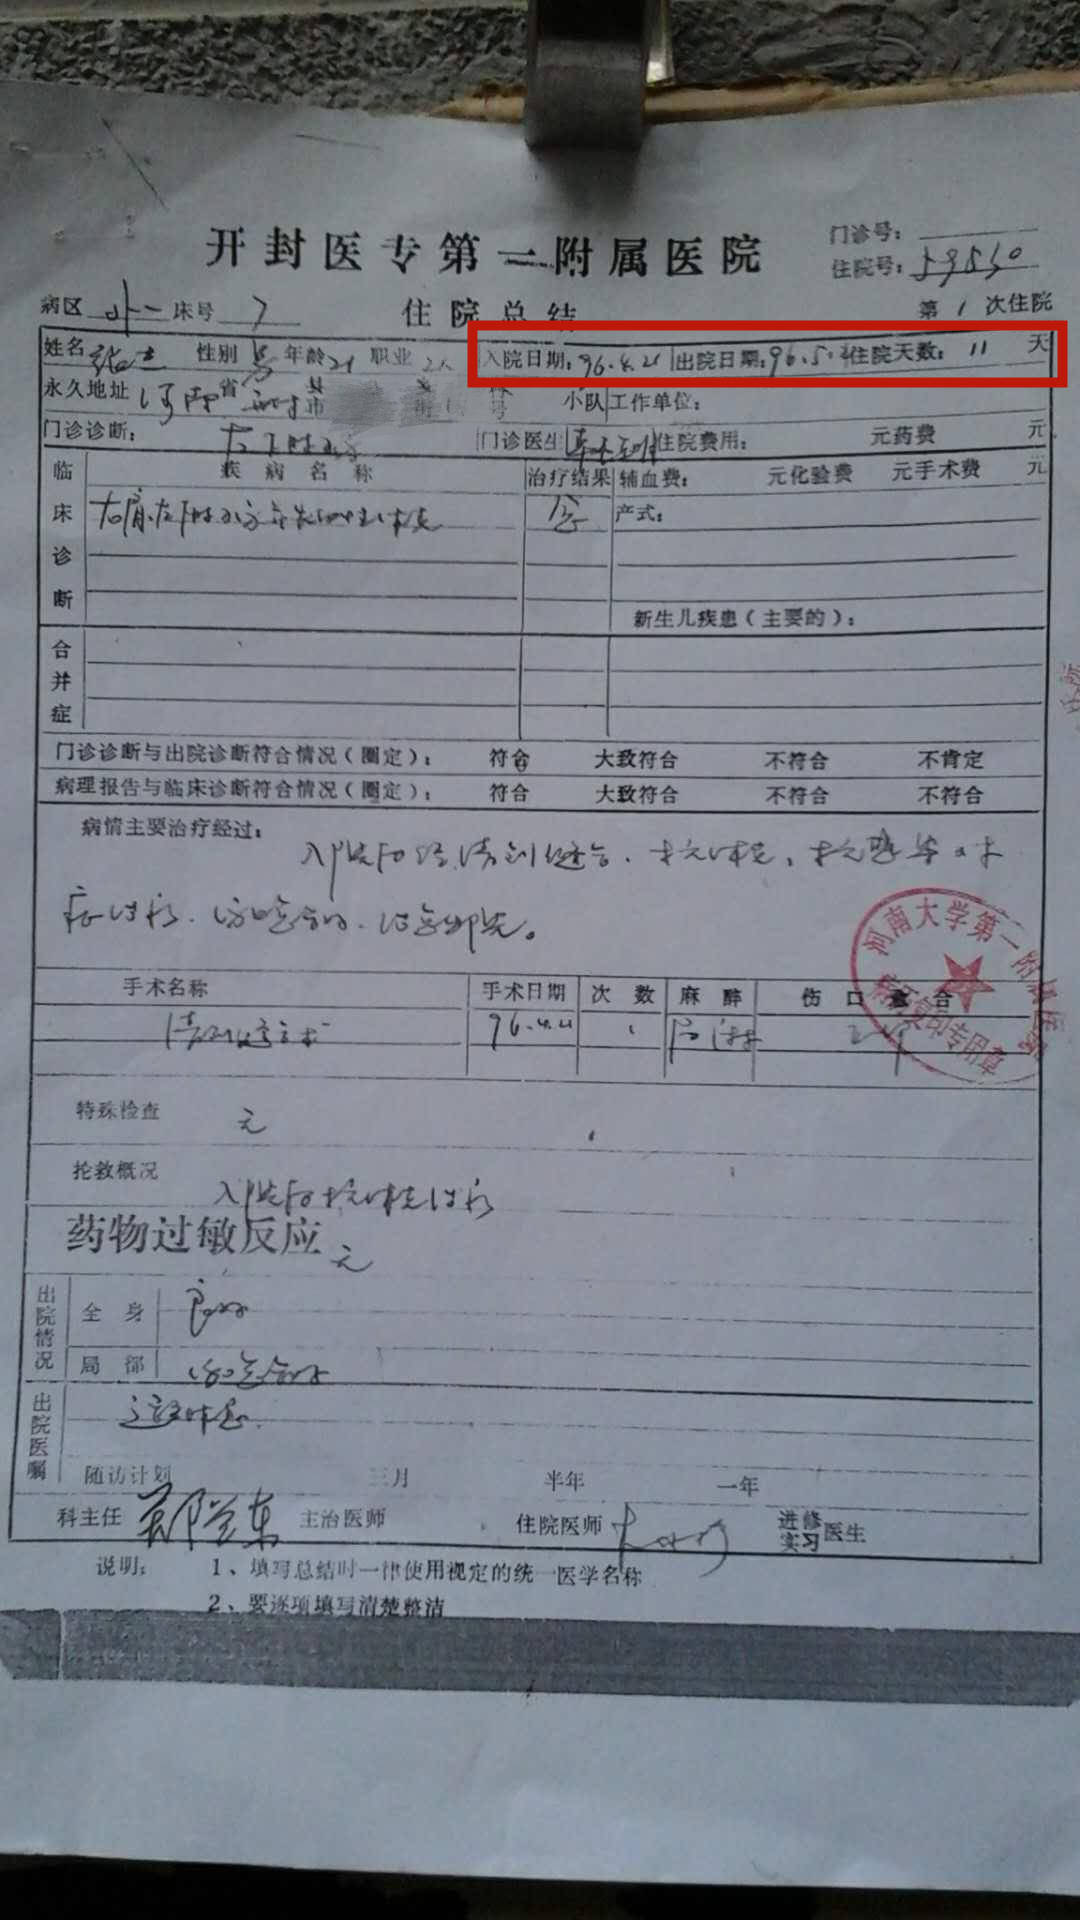 开封医专第一附属医院
门诊号：
住院号：59530
病区 外一 床号 7 住院总结 第 1 次住院
姓名 性别 男 年龄 21 职业 工人 入院日期：96.4.21 出院日期：96.5.2 住院天数：11 天
永久地址 河南省 开封市 号 小队 工作单位：
门诊诊断： 门诊医生 住院费用： 元 药费 元
临床诊断 疾病名称 治疗结果 辅血费： 元 化验费 元 手术费 元
产式：
新生儿疾患（主要的）：
合并症
门诊诊断与出院诊断符合情况（圈定）： 符合 大致符合 不符合 不肯定
病理报告与临床诊断符合情况（圈定）： 符合 大致符合 不符合 不符合
病情主要治疗经过：
入院后经清创缝合、抗休克、抗感染对
症治疗、治愈出院。
手术名称 手术日期 次数 麻醉 伤口愈合
清创缝合术 96.4.21 1 局麻
河南大学第一附属医院
病历复印专用章
特殊检查 无
抢救概况 入院后抗休克治疗
药物过敏反应 无
出院情况 全身 良好
局部
出院医嘱
随访计划 三月 半年 一年
科主任 主治医师 住院医师 进修实习医生
说明： 1、填写总结时一律使用视定的统一医学名称
2、要逐项填写清楚整洁